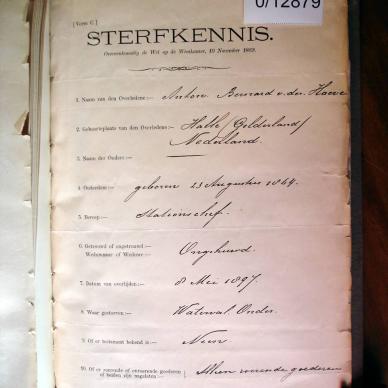 0/12879
[Vorm C.]
STERFKENNIS.
Overeenkomstig de Wet op de Weeskamer, 19 November 1869.
1. Naam van den Overledene:— Anton Bernard v. der Hoeve
2. Geboorteplaats van den Overledene:— Halle/Gelderland/
Nederland.
3. Namen der Ouders:—
4. Ouderdom:— geboren 23 Augustus 1864.
5. Beroep:— Stationschef.
6. Getrouwd of ongetrouwd :—
Weduwnaar of Weduwe :— Ongehuwd.
7. Datum van overlijden:— 8 Mei 1897.
8. Waar gestorven:— Waterval Onder.
9. Of er testament bekend is:— Neen
10. Of er roerende of onroerende goederen
of beiden zijn nagelaten:— Alleen roerende goederen